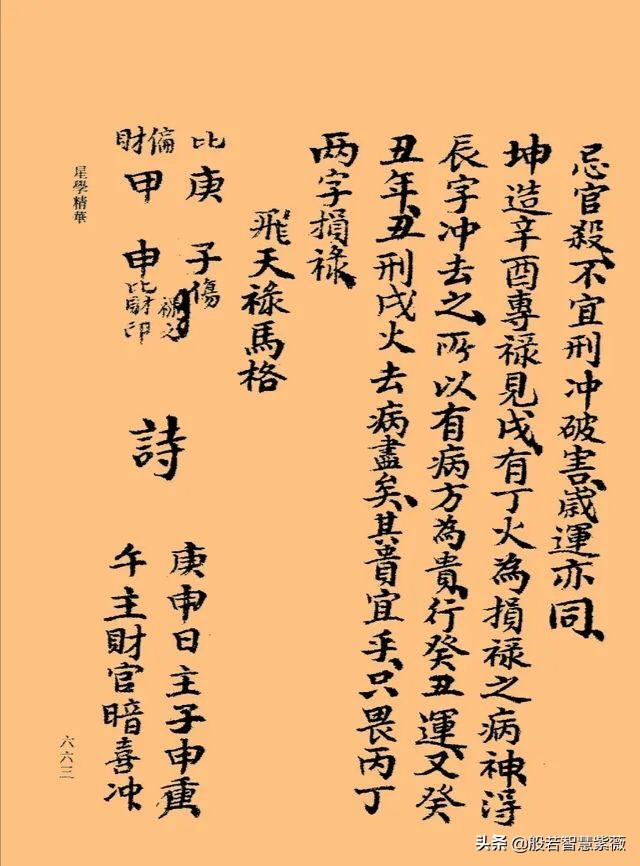 忌官殺、不宜刑冲破害、歲運亦同、
坤造辛酉專禄見戌、有丁火為損禄之病神、淂
辰字冲去之、所以有病方為貴、行癸丑運、又癸
丑年、丑刑戌火去病盡矣、其晉宜乎、只畏丙丁
两字損禄、
飛天禄馬格
比庚子傷
偏財甲申比財印
詩
庚申日主子申重
午主財官暗喜冲
星學精華
六六三
头条 @般若智慧紫薇